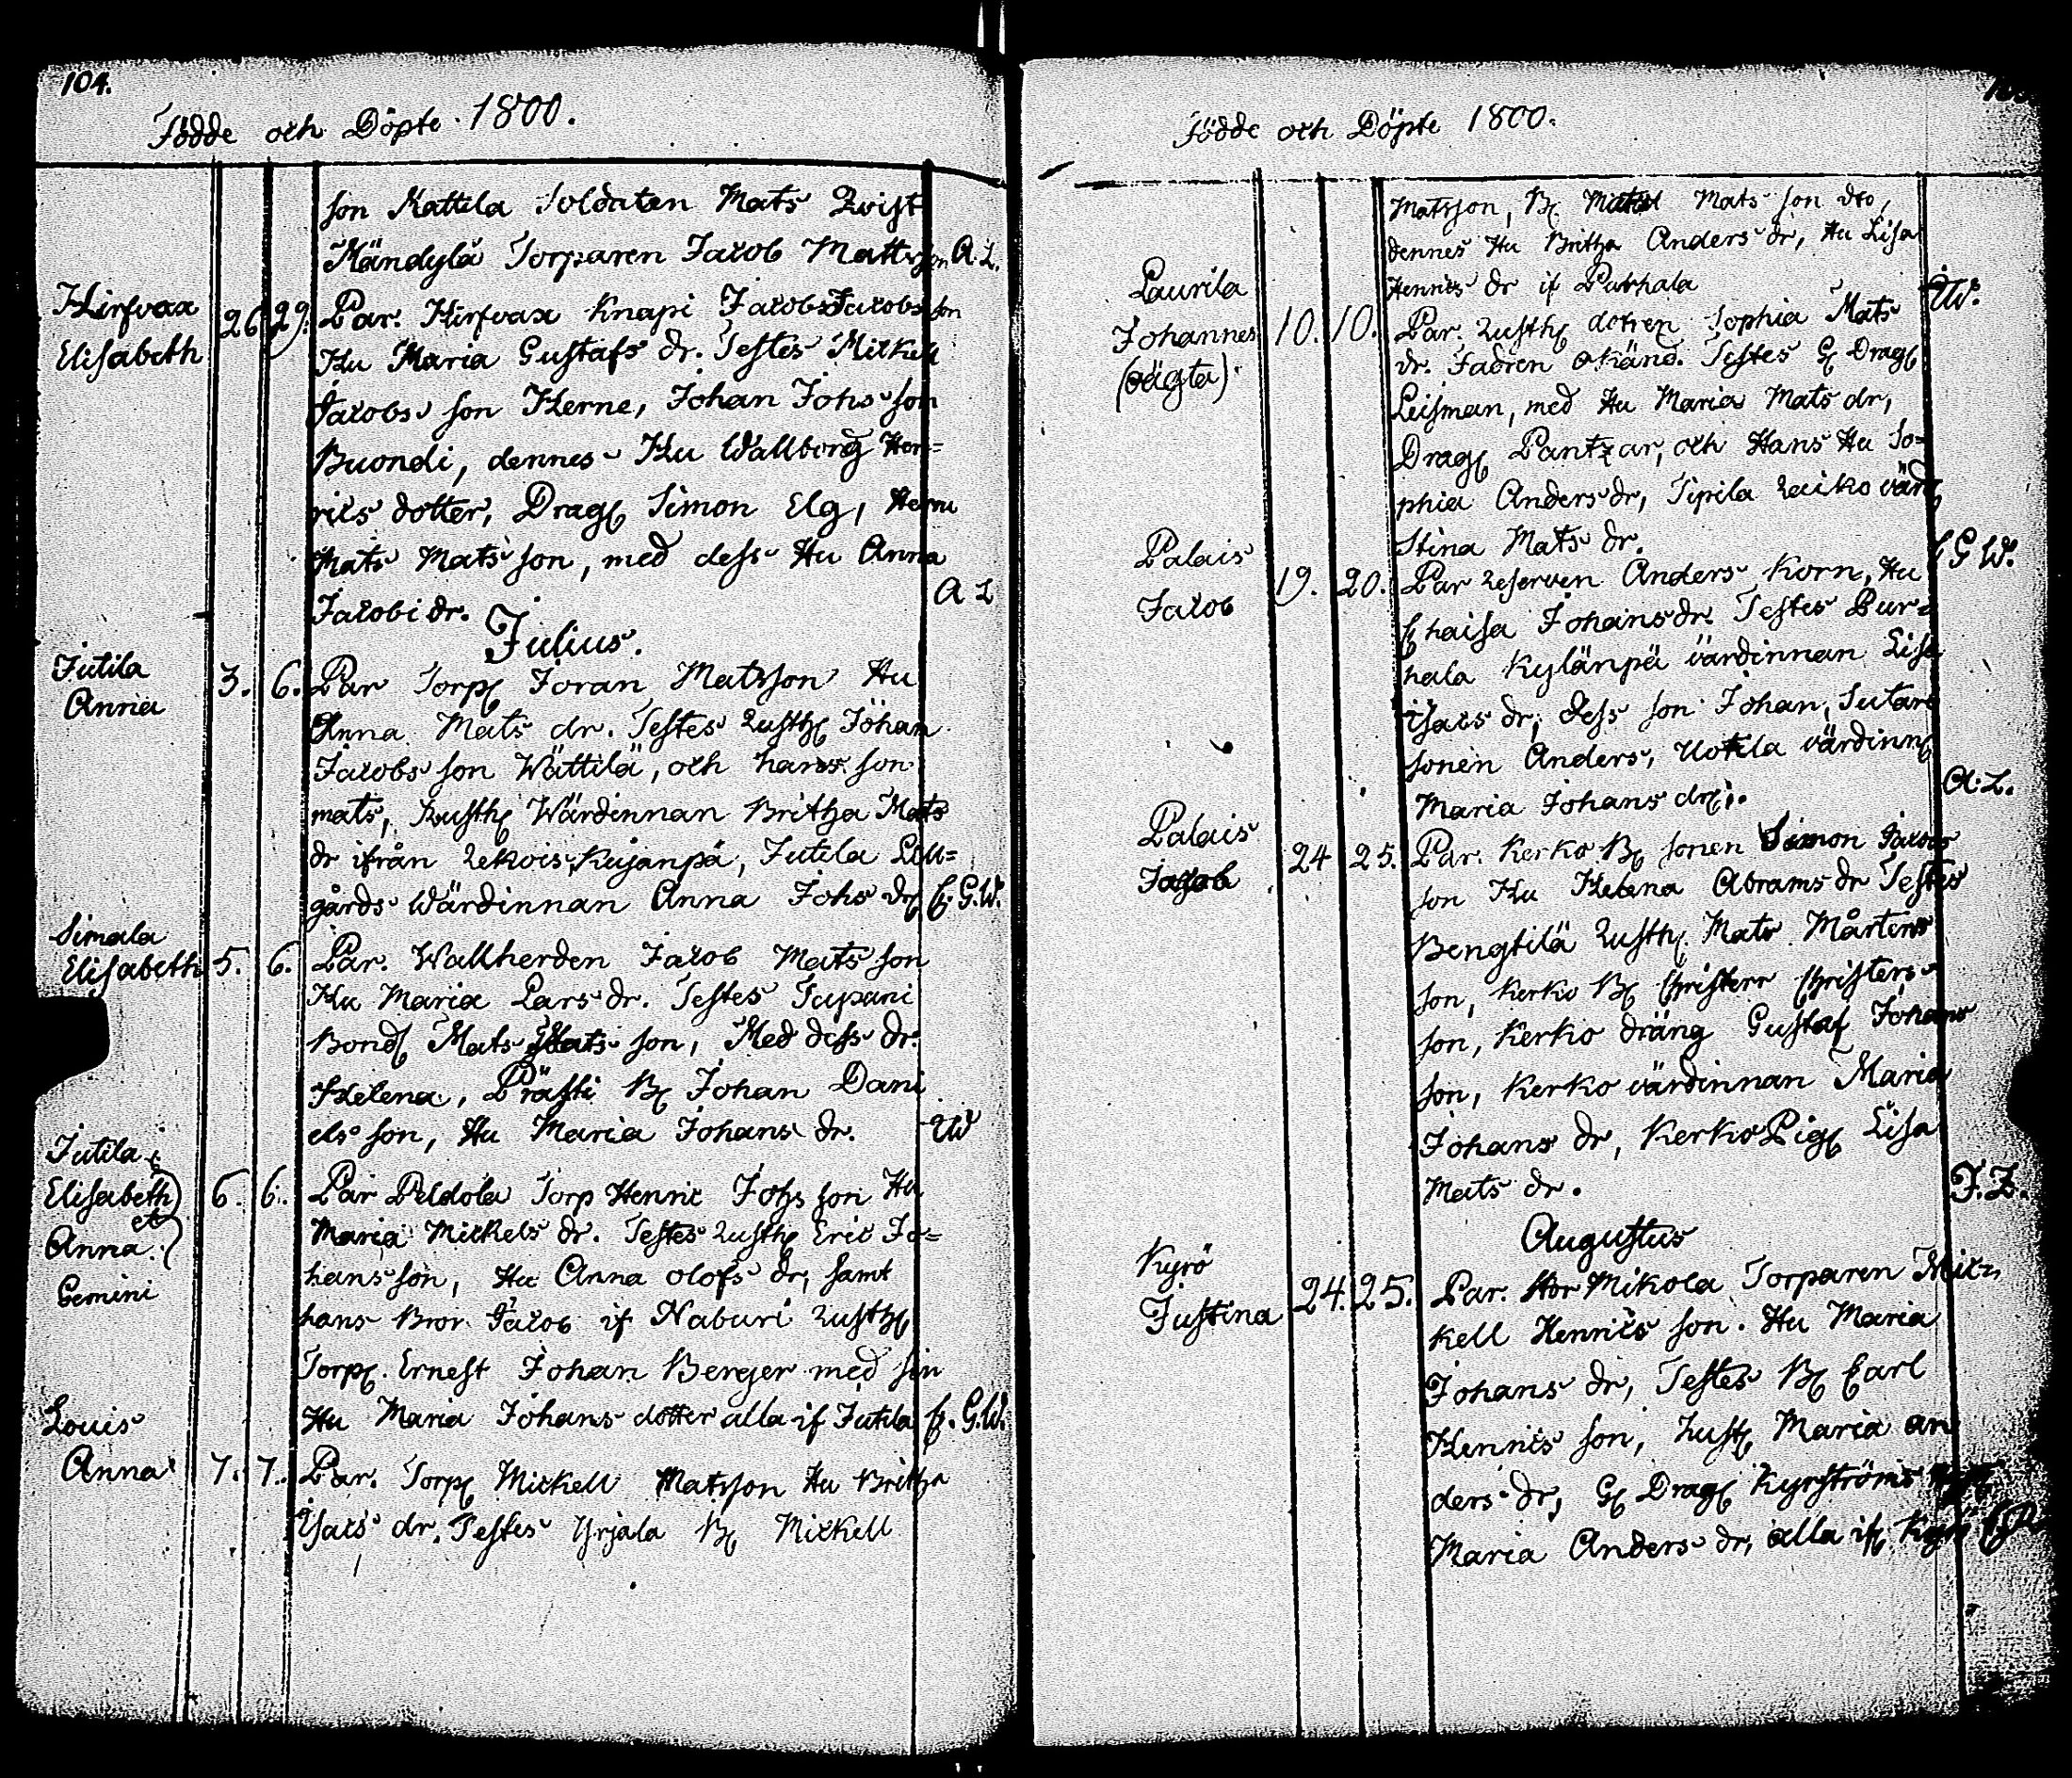 104.
Födde och Döpte 1800.
son Mattila Soldaten Mats Qvist
Mändylä Torparen Jacob Mattsson A. L.
Hirfvax
Elisabeth 26 29. Par. Hirfvax Knapi Jacobs Jacobsson
Hu Maria Gustafs dr. Testes Mickell
Jacobs son Herne, Johan Johs son
Buondi, dennes Hu Wallborg Hen=
rics dotter, Drag Simon Elg, Hernu
Mats Mats son, med dess Hu Anna
Jacobi dr. A L
Julius.
Jutila
Anna 3. 6. Par Torp Joran Matsson Hu
Anna Mats dr. Testes Rusth Johan
Jacobs son Wättilä, och hans son
mats, Rusth Wärdinnan Britha Mats
dr ifrån Lekois Kujanpä, Jutila Lill=
gårds Wärdinnan Anna Johs dr C. G. W.
Simala
Elisabeth 5. 6. Par. Wallherden Jacob Mats son
Hu Maria Lars dr. Testes Tapani
Bond Mats Mats son, Med dess dr.
Helena, Prästi B Johan Dani
els son, Hu Maria Johans dr. W
Jutila
Elisabeth
et
Anna.
Gemini 6. 6. Par Peldola Torp Henric Johs son Hu
Maria Mickels dr. Testes Rusth Eric Jo=
hans son, Hu Anna Olofs dr, samt
hans Bror Jacob if Naburi Rusth
Torp. Ernest Johan Berger med sin
Hu Maria Johans dotter alla if Jutila C. G. W.
Louis
Anna 7. 7. Par. Torp Mickell Matsson Hu Britha
Isacs dr. Testes Yrjala B Mickell
Födde och Döpte 1800.
Matsson, B Mats Mats son dto,
dennes Hu Britha Anders dr, Hu Lisa
Henrics dr if Purhala W.
Laurila
Johannes
(oägta) 10. 10. Par. Rusth dotren Sophia Mats
dr. Fadren okänd. Testes G Drag
Leisman, med Hu Maria Mats dr,
Drag Pantzar, och Hans Hu So=
phia Anders dr, Sipila Raiko värd
Stina Mats dr. C G W.
Palais
Jacob 19. 20. Par Reserven Anders Korn, Hu
Chaisa Johans dr. Testes Pur=
hala Kylänpä värdinnan Lisa
Isacs dr, dess son Johan, Sutare
sonen Anders, Uotila värdinn
Maria Johans dr. A. L.
Palais
Jacob 24 25. Par. Kerko B sonen Simon Jacobs
son Hu Helena Abrams dr Testes
Bengtilä Rusth. Mats Mårtens
son, Kerko B Christerr Christers
son, Kerko dräng Gustaf Johans
son, Kerko värdinnan Maria
Johans dr, Kerko Pig Lisa
Mats dr. F. Z.
Augustus
Kyrö
Justina 24. 25. Par. Hor Mikola Torparen Mic=
kell Henrics son. Hu Maria
Johans dr, Testes B Carl
Henrics son, Hust Maria an
ders dr, G Drag Kyrströms
Maria Anders dr, alla if Kyrö